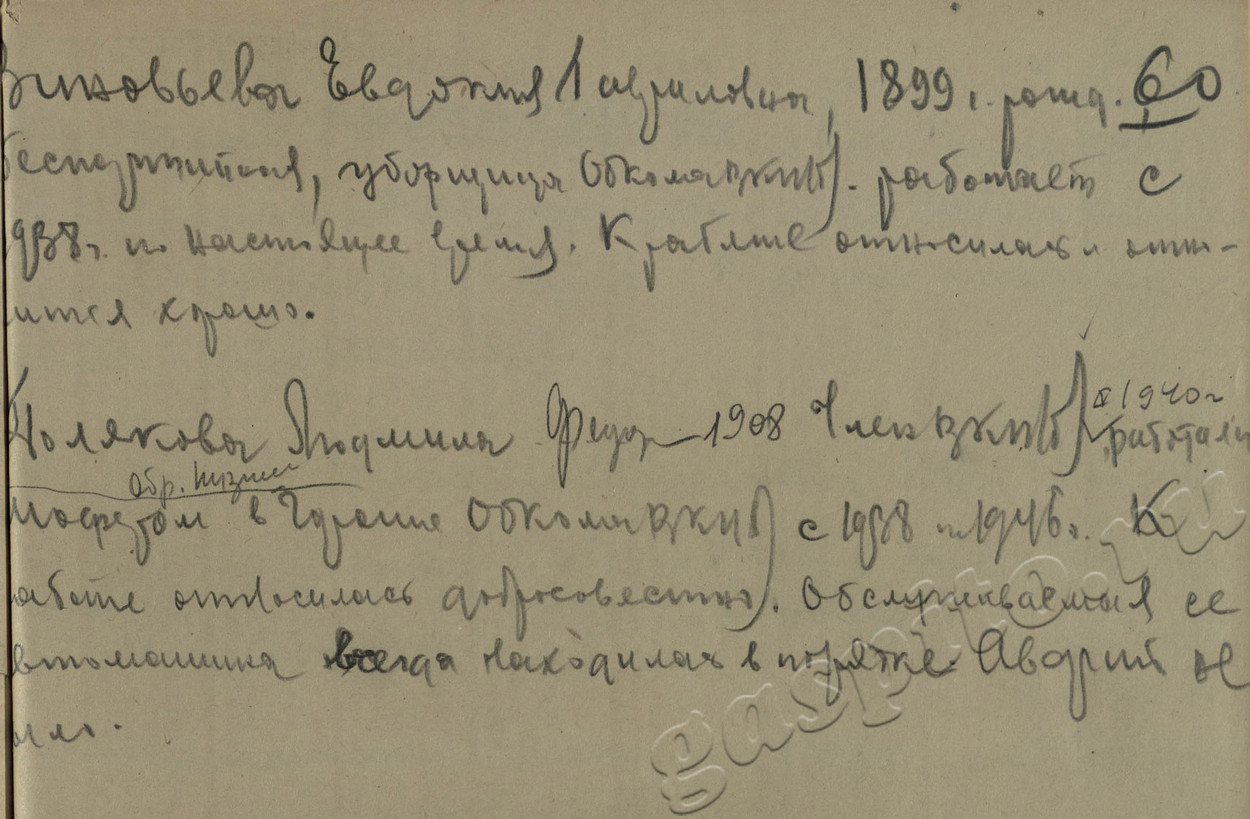 Зиновьева Евдокия Гавриловна, 1899 г. рожд. 60
беспартийная, уборщица Обкома ВКП(б). работает с
1938 г. по настоящее время. К работе относилась и отно-
сится хорошо.
Полякова Людмила Федор 1908 Член ВКП(б) с 1940 г
работала
обр. низшее
шофером в Гараже Обкома ВКП(б) с 1938 по 1946 г. К
работе относилась добросовестно. Обслуживаемая ее
автомашина всегда находилась в порядке. Аварий не
было.
gaspiro.ru